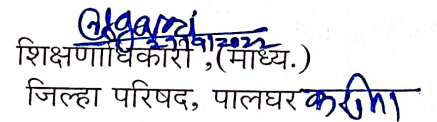 शिक्षणाधिकारी ,(माध्य.)
जिल्हा परिषद, पालघर करीता